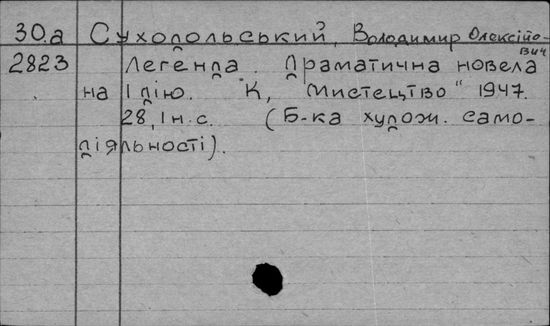 30.а Суходольський, Володимир Олексійо-
вич
2823 Легенда. Драматична новела
на 1 дію. К, "Мистецтво" 1947.
28, 1 н. с. (Б-ка худож. само-
діяльності).